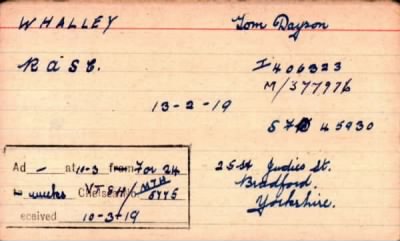 WHALLEY Tom Dayson
R A S C. I 406323
M/377976
13-2-19
S 7 45930
Ad - at 11-3 from For 24
to weeks Chelsea
VTSH/MTH 6445
eceived 10-3-19
25 St Judies St.
Bradford.
Yorkshire.